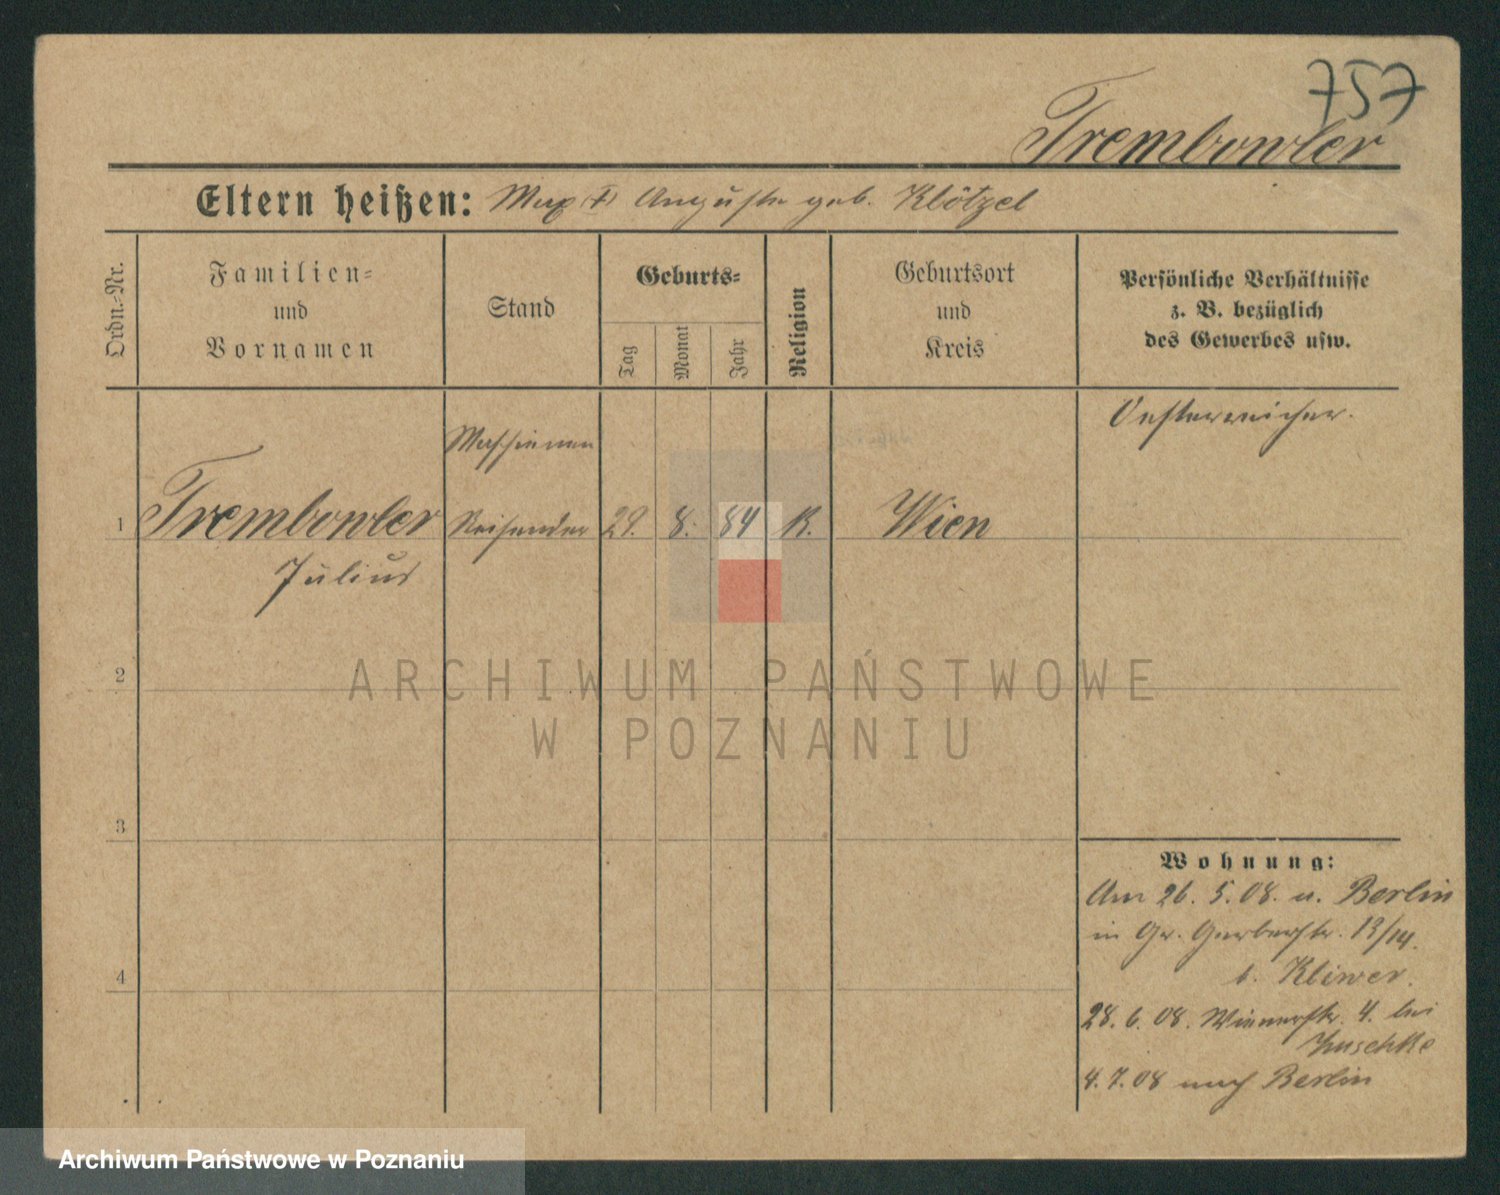 757
Trembowler
Eltern heißen: Max (†) Auguste geb. Klötzel
Ordn.-Nr.
Familien-
und
Vornamen
Stand
Geburts-
Tag
Monat
Jahr
Religion
Geburtsort
und
Kreis
Persönliche Verhältnisse
z. B. bezüglich
des Gewerbes usw.
Oesterreicher.
Maschinen
1 Trembowler Reisender 29. 8. 84 K. Wien
Julius
2
ARCHIWUM PAŃSTWOWE
W POZNANIU
3
Wohnung:
Am 26. 5. 08. v. Berlin
in Gr. Gerberstr. 13/14.
b. Kliwer.
4
28. 6. 08. Wienerstr. 4. bei
4. 7. 08 nach Berlin
Archiwum Państwowe w Poznaniu